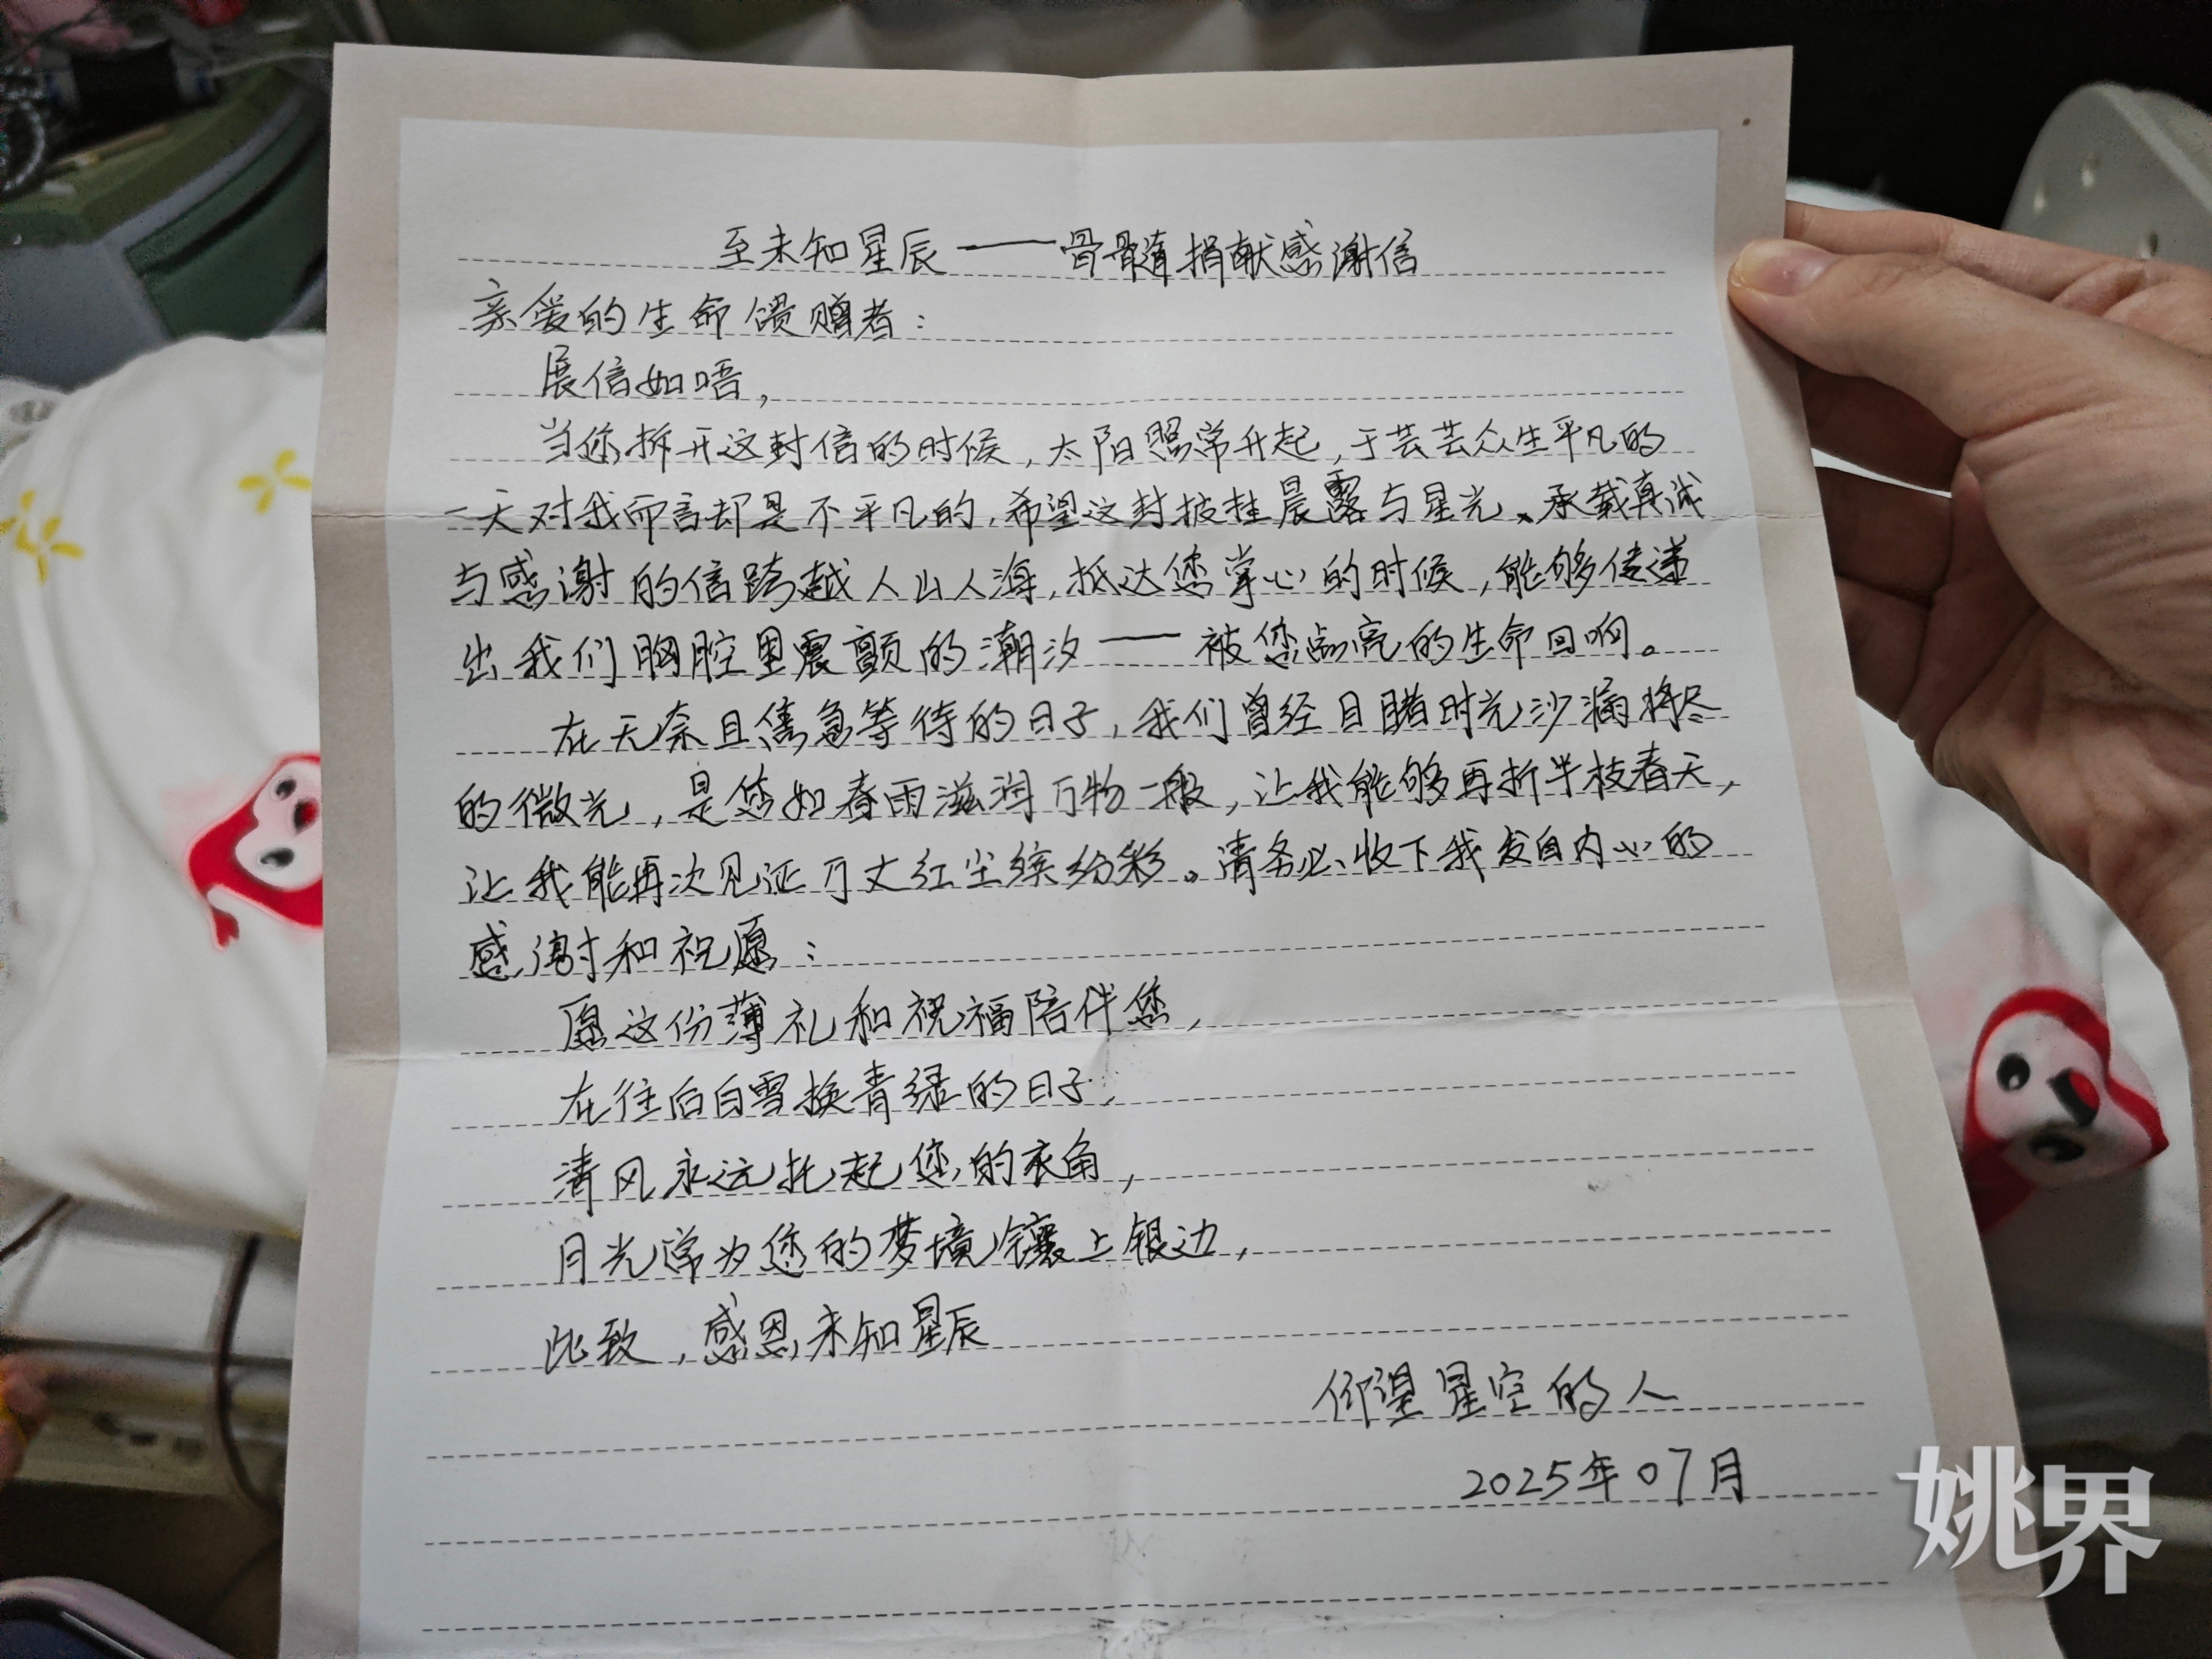 至未知星辰——骨髓捐献感谢信
亲爱的生命馈赠者：
展信如唔，
当您拆开这封信的时候，太阳照常升起，于芸芸众生平凡的
一天对我而言却是不平凡的，希望这封披挂晨露与星光、承载真诚
与感谢的信跨越人山人海，抵达您掌心的时候，能够传递
出我们胸腔里震颤的潮汐——被您点亮的生命回响。
在无奈且焦急等待的日子，我们曾经目睹时光沙漏将尽
的微光，是您如春雨滋润万物一般，让我能够再折半枝春天，
让我能再次见证万丈红尘缤纷彩。请务必收下我发自内心的
感谢和祝愿：
愿这份薄礼和祝福陪伴您，
在往后白雪换青绿的日子，
清风永远托起您的衣角，
月光常为您的梦境镶上银边，
此致，感恩未知星辰
仰望星空的人
2025年07月
姚界